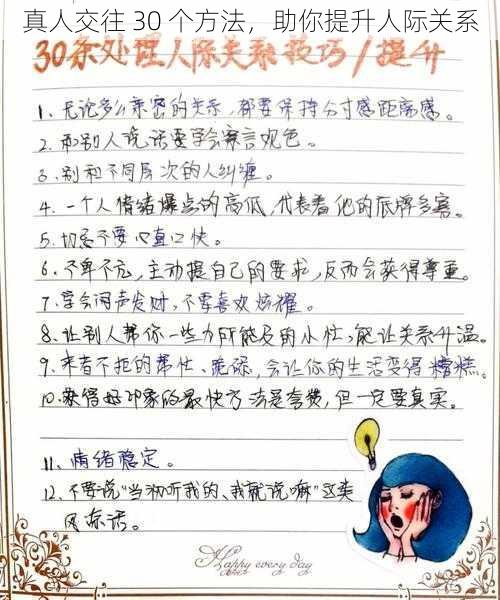 真人交往 30 个方法，助你提升人际关系
30条处理人际关系技巧/提升
1、无论多么亲密的关系，都要保持分寸感距离感。
2、和别人说话要学会察言观色。
3、别和不同层次的人纠缠。
4、一个人情绪爆点的高低，代表着他的底牌多寡。
5、切忌不要心直口快。
6、不卑不亢，主动提自己的要求，反而会获得尊重。
7、学会闷声发财，不要喜欢炫耀。
8、让别人帮你一些力所能及的小忙，能让关系升温。
9、来者不拒的帮忙、脆弱，会让你的生活变得糟糕。
10、获得好印象的最快方法是夸赞，但一定要真实。
11、情绪稳定。
12、不要说“当初听我的、我就说嘛”这类
风凉话。
Happy every day